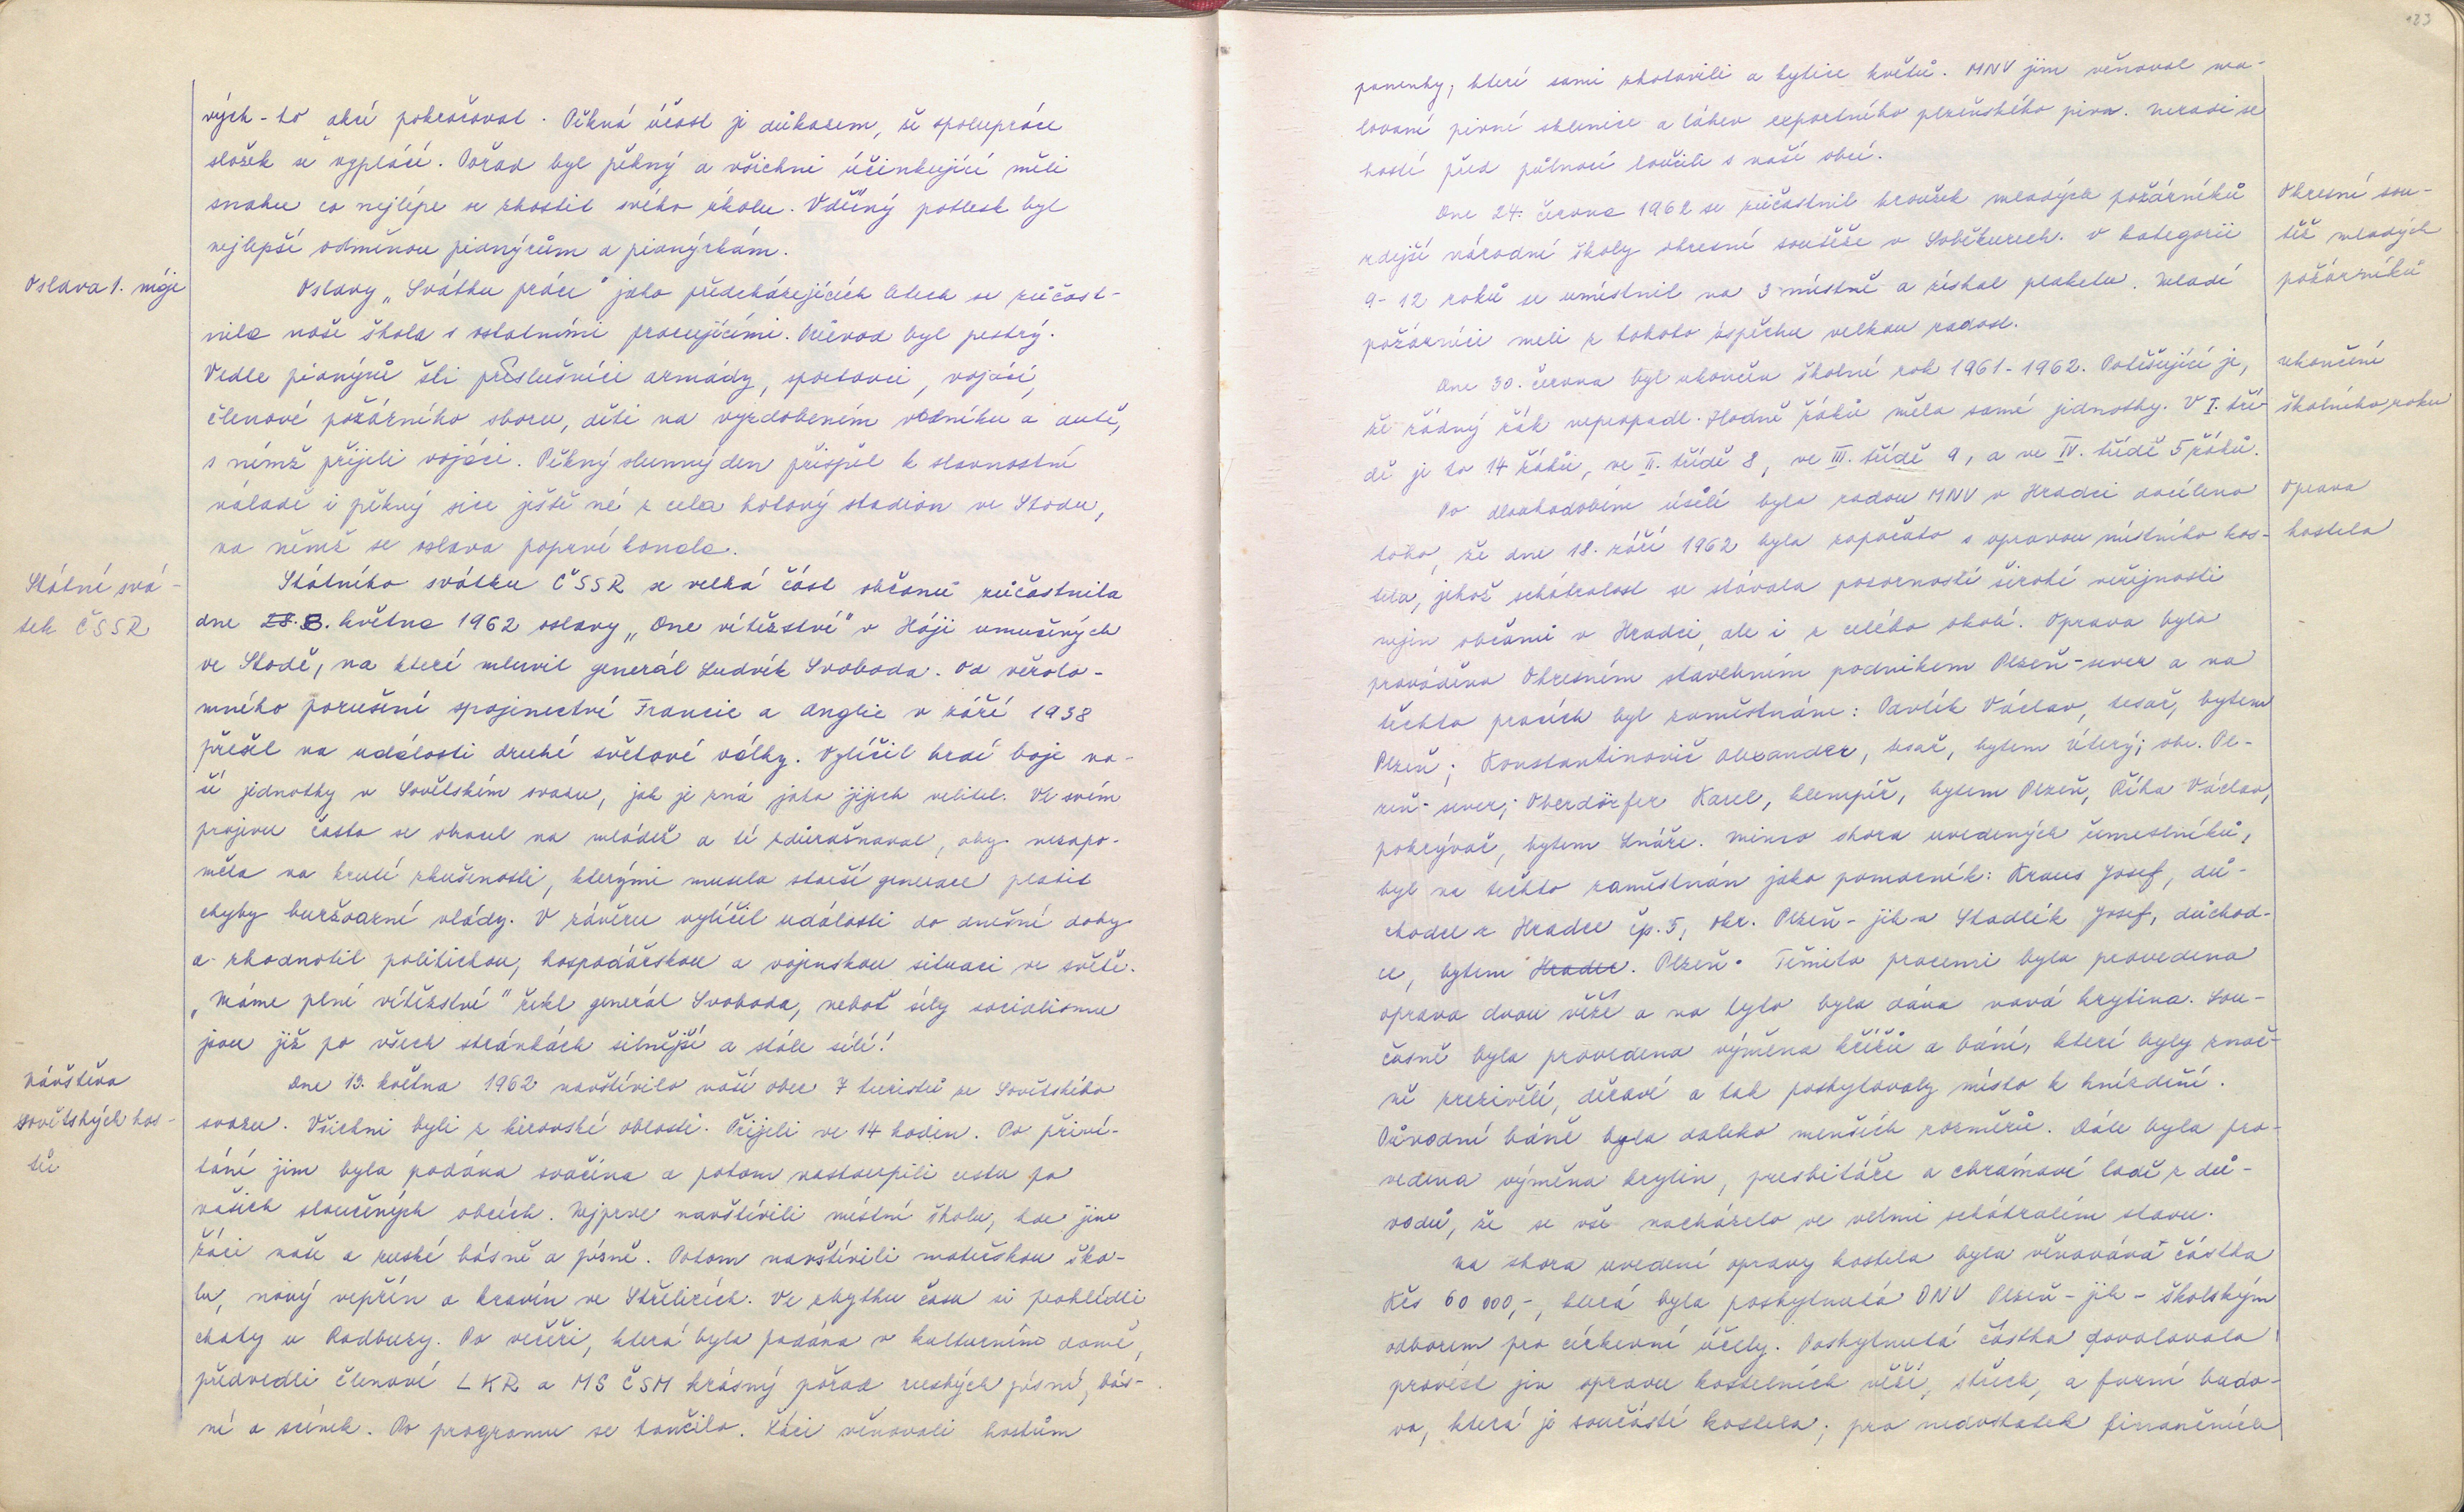 vých-to akcí pokračoval. Pěkná účast je důkazem, že spolupráce
složek se vyplácí. Pořad byl pěkný a všichni účinkující měli
snahu co nejlépe se zhostit svého úkolu. Vděčný potlesk byl
nejlepší odměnou pionýrům a pionýrkám.
Oslava 1. máje
Oslavy „Svátku práce" jako předcházejících letech se zúčast-
nila naše škola s ostatními pracujícími. Průvod byl pestrý.
Vedle pionýrů šli příslušníci armády, sportovci, vojáci,
členové požárního sboru, děti na vyzdobeném valníku a autě,
s nímž přijeli vojáci. Pěkný slunný den přispěl k slavnostní
náladě i pěkný sice ještě né z cela hotový stadion ve Stodu,
na němž se oslava poprvé konala.
Státní svá-
tek ČSSR
Státního svátku ČSSR se velká část občanů zúčastnila
dne 28. 8. května 1962 oslavy „Dne vítězství" v Háji umučených
ve Stodě, na které mluvil generál Ludvík Svoboda. Od věrolo-
mného porušení spojenectví Francie a Anglie v září 1938
přešel na události druhé světové války. Vylíčil hrdé boje na-
ší jednotky v Sovětském svazu, jak je zná jako jejich velitel. Ve svém
projevu často se obracel na mládež a té zdůrazňoval, aby nezapo-
měla na kruté zkušenosti, kterými musela starší generace platit
chyby buržoazní vlády. V závěru vylíčil události do dnešní doby
a zhodnotil politickou, hospodářskou a vojenskou situaci ve světě.
„Máme plné vítězství" řekl generál Svoboda, neboť síly socialismu
jsou již po všech stránkách silnější a stále sílí!
Návštěva
sovětských hos-
tů
Dne 13. května 1962 navštívilo naší obec 7 turistů ze Sovětského
svazu. Všichni byli z kirovské oblasti. Přijeli ve 14 hodin. Po přiví-
tání jim byla podána svačina a potom nastoupili cestu po
našich sloučených obcích. Nejprve navštívili místní školu, kde jim
žáci naše a ruské básně a písně. Potom navštívili mateřskou ško-
lu, nový vepřín a kravín ve Střelicích. Ve zbytku času si prohlédli
chaty u Radbuzy. Po večeři, která byla podána v kulturním domě,
předvedli členové LKR a MS ČSM krásný pořad ruských písní, bás-
ní a scének. Po programu se tančilo. Žáci věnovali hostům
123
ponenky, které sami zhotovili a kytice květů. MNV jim věnoval ma-
lované pivní sklenice a láhev exportního plzeňského piva. Neradi se
hosté před půlnocí loučili s naší obcí.
Okresní sou-
těž mladých
požárníků
Dne 24. června 1962 se zúčastnil kroužek mladých požárníků
zdejší národní školy okresní soutěže v Soběkurech. V kategorii
9-12 roků se umístnil na 3 místně a získal plaketu. Mladí
požárníci meli z tohoto úspěchu velkou radost.
ukončení
školního roku
Dne 30. června byl ukončen školní rok 1961-1962. Potěšující je,
že žádný žák nepropadl. Hodně žáků měla samé jednotky. V I. tří-
dě je to 14 žáků, ve II. třídě 8, ve III. třídě 9, a ve IV. třídě 5 žáků.
Oprava
kostela
Po dlouhodobém úsilí byla radou MNV v Hradci docíleno
toho, že dne 18. září 1962 byla započato s opravou místního kos-
tela, jehož schátralost se stávala pozorností široké veřejnosti
nejen občanů v Hradci, ale i z celého okolí. Oprava byla
prováděna Okresním stavebním podnikem Plzeň-sever a na
těchto pracích byl zaměstnáni: Pavlík Václav, tesař, bytem
Plzeň; Konstantinovič Alexander, tesař, bytem Úterý; okr. Pl-
zeň-sever; Oberdörfer Karel, klempíř, bytem Plzeň, Říha Václav,
pokrývač, bytem Lnáře. Mimo shora uvedených řemeslníků,
byl na těchto zaměstnán jako pomocník: Kraus Josef, dů-
chodce z Hradce čp. 5, okr. Plzeň-jih a Stadlík Josef, důchod-
ce, bytem Hradec. Plzeň. Těmito pracemi byla provedena
oprava dvou věží a na tyto byla dána nová krytina. Sou-
časně byla provedena výměna křížů a bání, které byly znač-
ně zrezivělé, děravé a tak poskytovaly místo k hnízdění.
Původní báně byla daleko menších rozměrů. Dále byla pro-
vedena výměna krytin, presbitáře a chrámové lodě z dů-
vodů, že se vše nacházelo ve velmi schátralém stavu.
Na shora uvedené opravy kostela byla věnována částka
Kčs 60 000,-, která byla poskytnutá ONV Plzeň-jih - školským
odborem pro církevní účely. Poskytnutá částka dovolovala
provést jen opravu kostelních věží, střech, a farní budo-
va, která je součástí kostela; pro nedostatek finančních